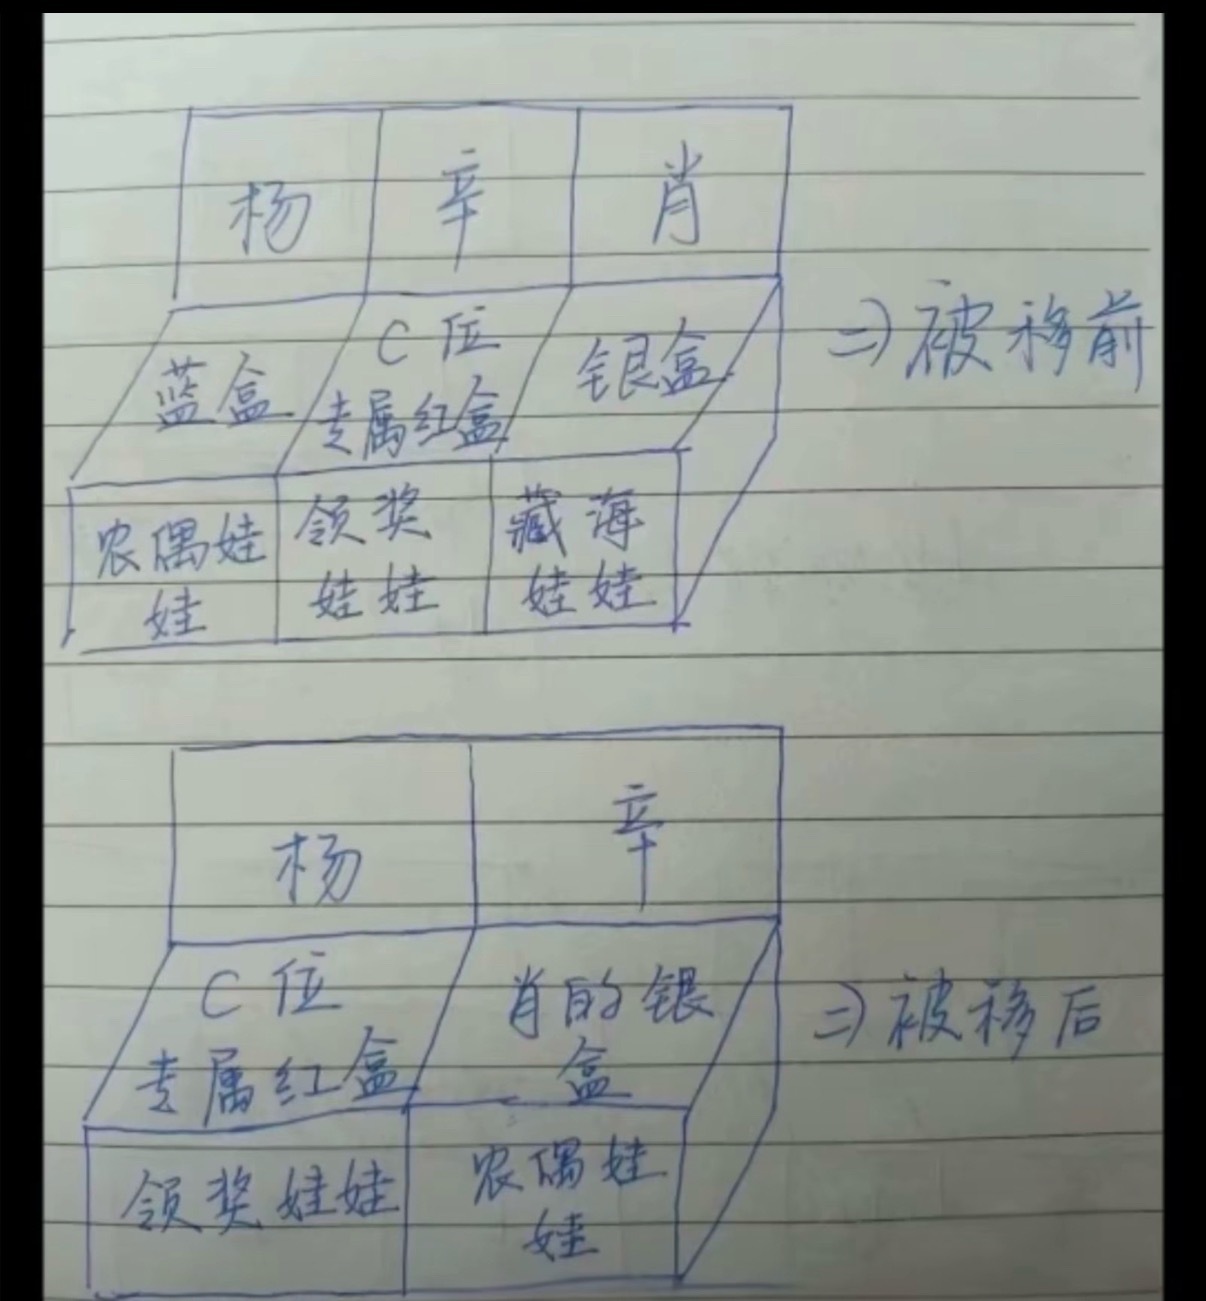 杨 辛 肖
蓝盒 C位 银盒
专属红盒
=>被移前
农偶娃 领奖 藏海
娃 娃娃 娃娃
杨 辛
C位 肖的银
专属红盒 盒
=>被移后
领奖娃娃 农偶娃
娃